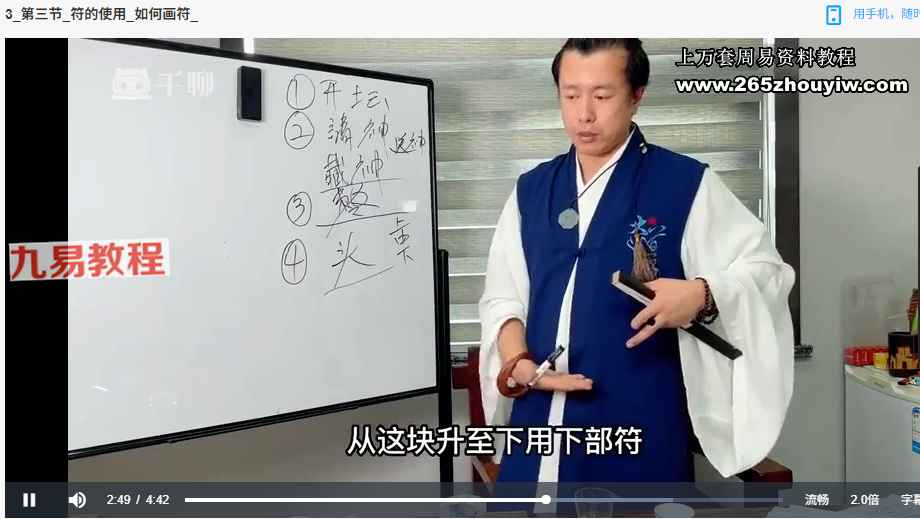 3_第三节_符的使用_如何画符_
用手机，随时
上万套周易资料教程
www.265zhouyiw.com
千聊
① 开坛
② 請神 送神
藏神
③
④ 头
九易教程
从这块升至下用下部符
2:49 / 4:42
流畅
2.0倍
字幕